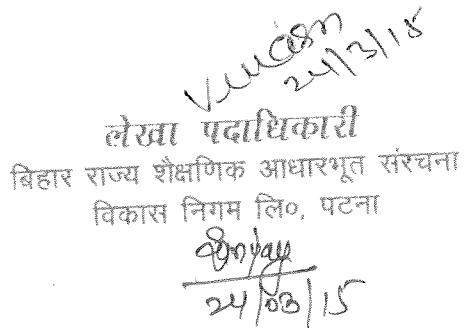 24/3/15
लेखा पदाधिकारी
बिहार राज्य शैक्षणिक आधारभूत संरचना
विकास निगम लि०, पटना
24/03/15